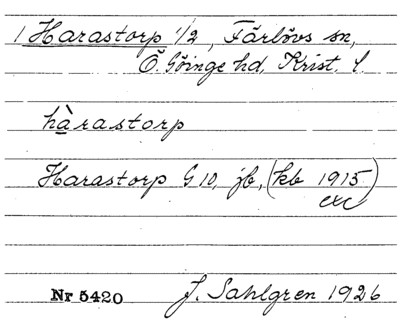 1 Harastorp 1/2, Färlövs sn,
Ö. Göinge hd, Krist. l.
hàrastorp
Harastorp G 10, jb, (kb 1915)
exc
Nr 5420 J. Sahlgren 1926